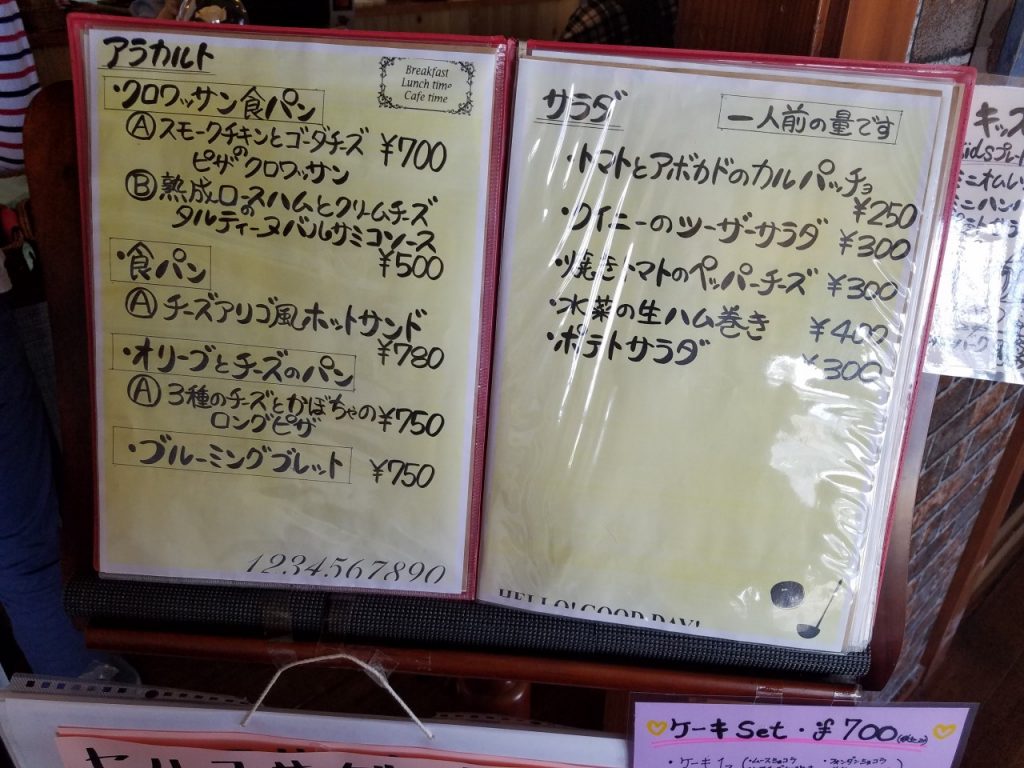 アラカルト
Breakfast
Lunch time
Cafe time
・クロワッサン食パン
Ⓐスモークチキンとゴーダチーズ
のピザクロワッサン ¥700
Ⓑ熟成ロースハムとクリームチーズ
のタルティーヌバルサミコソース
¥500
・食パン
Ⓐチーズアリゴ風ホットサンド
¥780
・オリーブとチーズのパン
Ⓐ3種のチーズとかぼちゃの ¥750
ロングピザ
・ブルーミングブレット ¥750
1234567890
サラダ
一人前の量です
・トマトとアボカドのカルパッチョ
¥250
・クイニーのツーザーサラダ ¥300
・焼きトマトのペッパーチーズ ¥300
・水菜の生ハム巻き ¥400
・ポテトサラダ ¥300
HELLO! GOOD DAY!
キッズ
Kidsプレート
ケーキSet・¥700
・ケーキ1つ